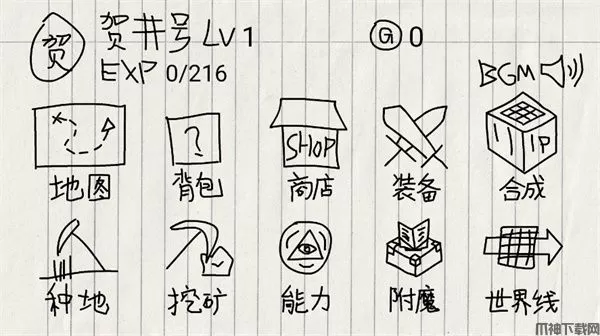 贺 贺井号 LV 1 G 0
EXP 0/216 BGM
? SHOP IP
地图 背包 商店 装备 合成
种地 挖矿 能力 附魔 世界线
M神下载网